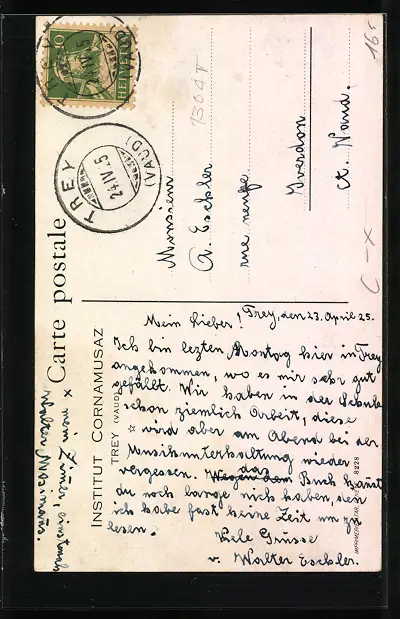 Carte postale
INSTITUT CORNAMUSAZ
TREY (VAUD)
10
HELVETIA
TREY
(VAUD)
24.IV.25
1304 T
16
Monsieur
A. Eschler
rue neuve
Yverdon
ct. Vaud.
C-X
Trey, den 23. April 25.
Mein lieber!
Ich bin lezten Montag hier in Trey
angekommen, wo es mir sehr gut
gefällt. Wir haben in der Schule
schon ziemlich Arbeit, diese
wird aber am Abend bei der
Musikunterhaltung wieder
vergessen. Wegen dem das Buch kannst
du noch lange nich haben, den
ich habe fast keine Zeit um zu
lesen.
Viele Grüsse
v. Walter Eschler.
x mein Zimmer,
8228